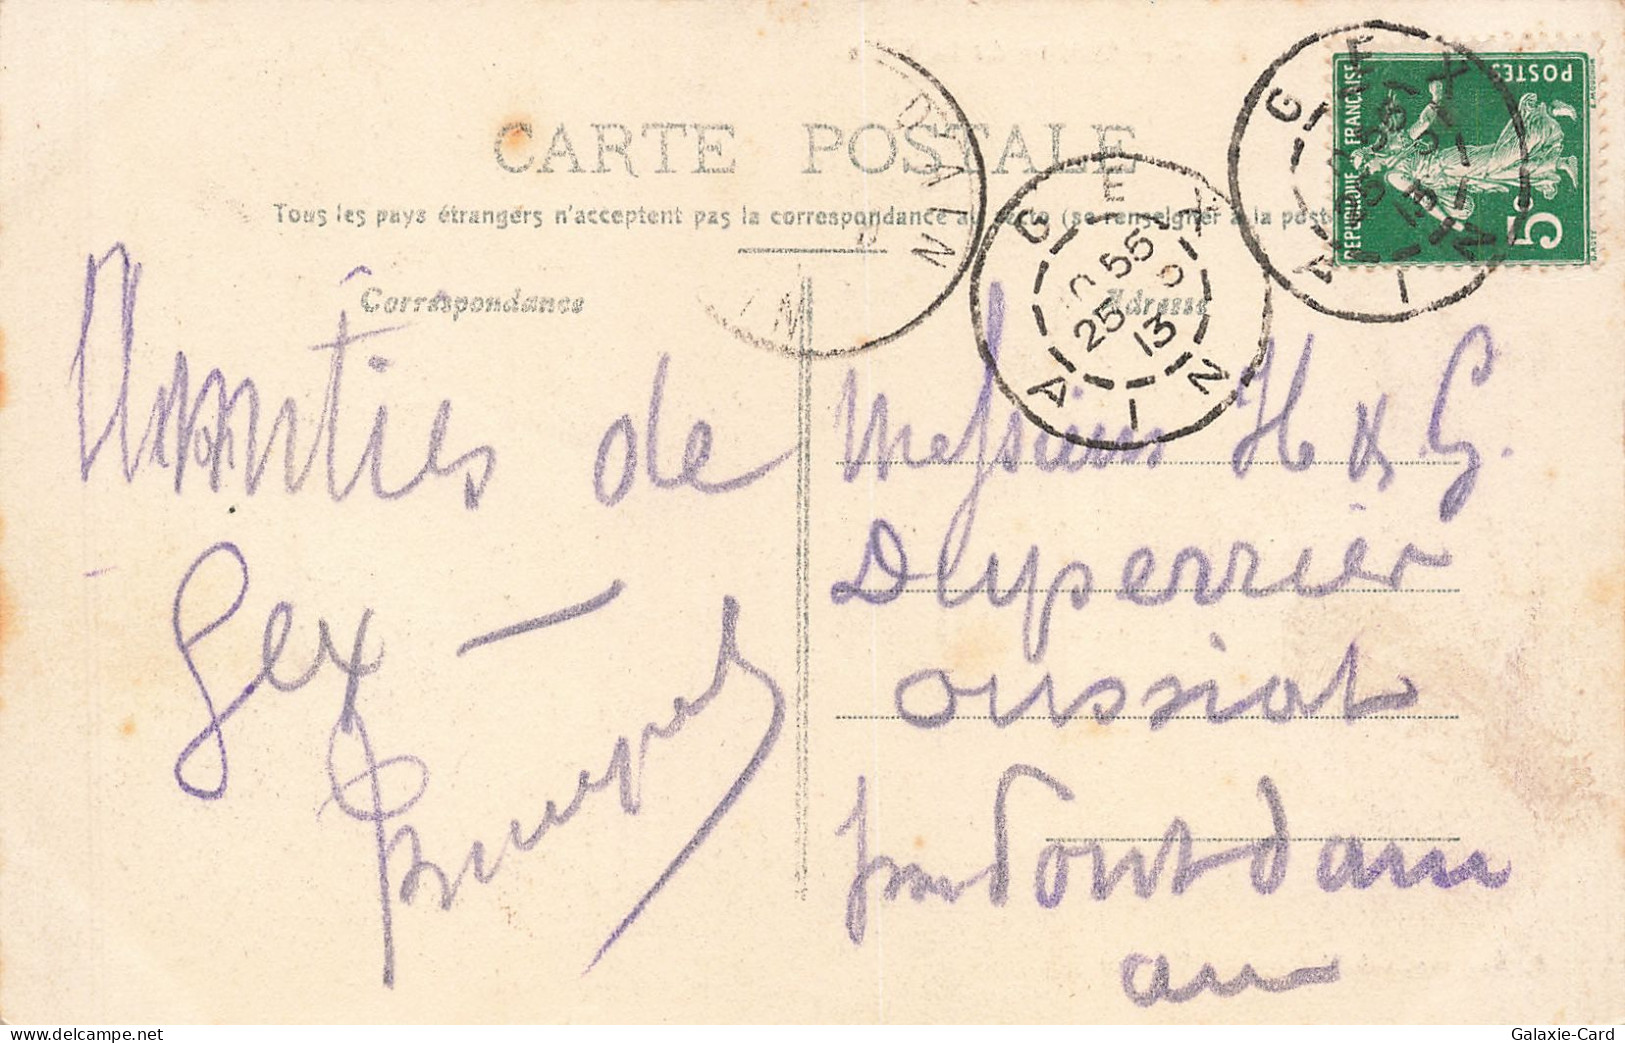 CARTE POSTALE
Tous les pays étrangers n'acceptent pas la correspondance au recto (se renseigner à la poste
Correspondance
Adresse
Amitiés de
Gex —
Messieurs H & G.
Duperrier
oussiat
Pont dain
ain
GEX
AIN
10 55
25
13
GEX
AIN
REPUBLIQUE FRANÇAISE
POSTES
5
delcampe.net
Galaxie-Card